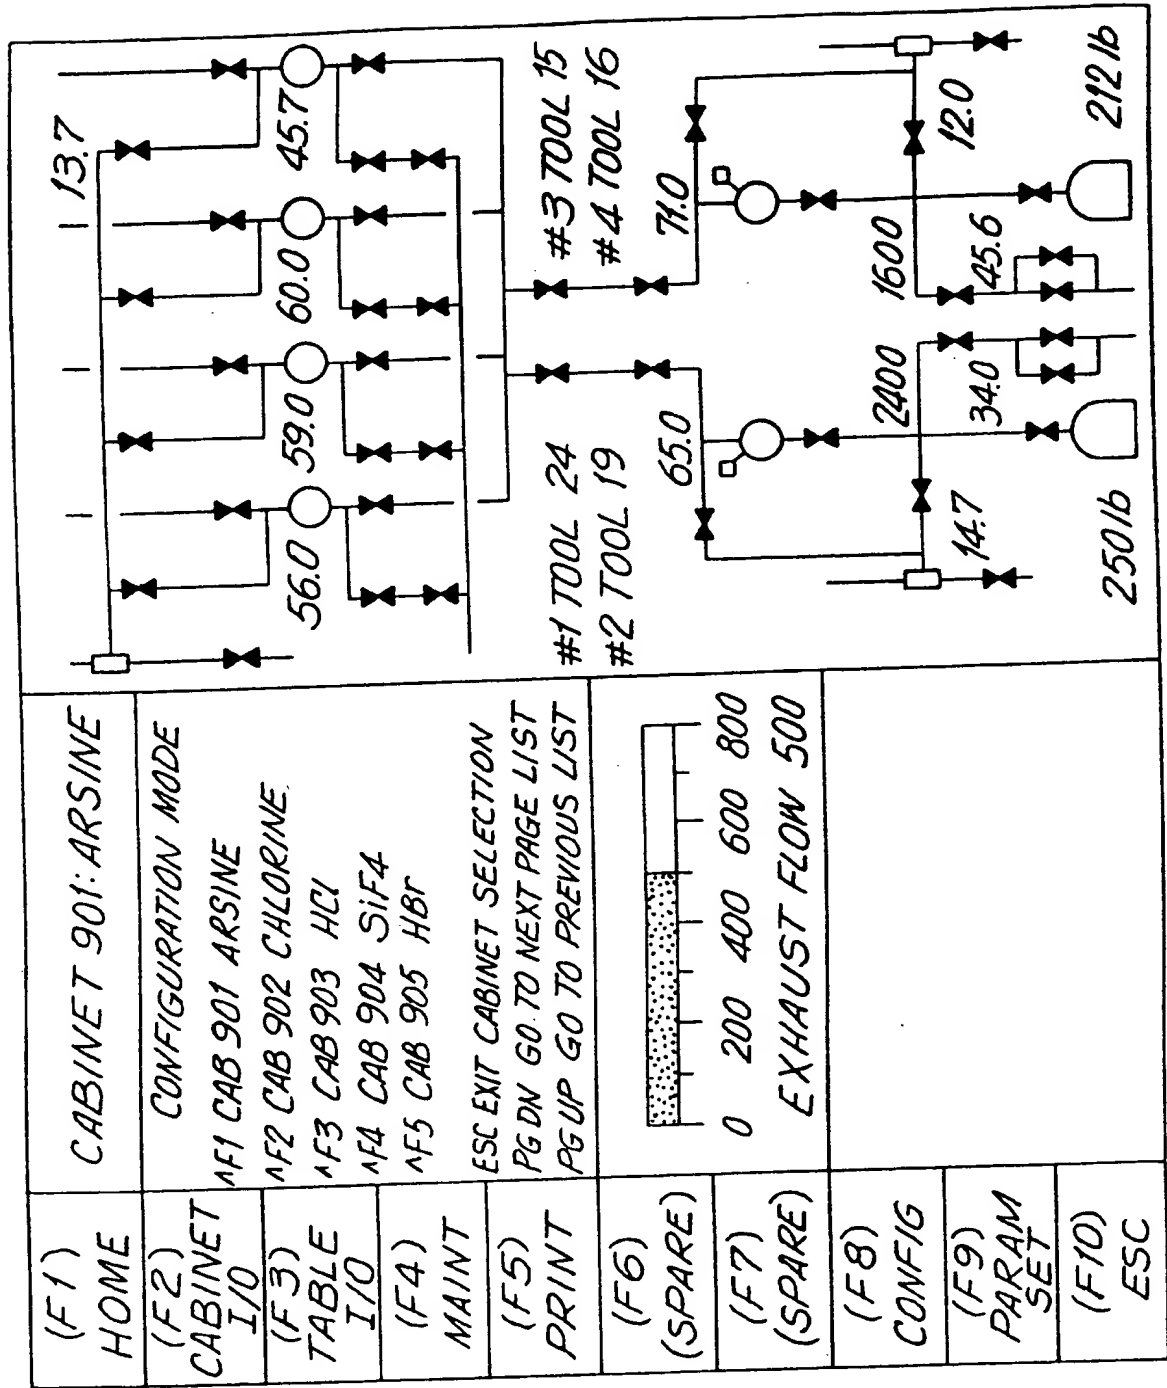 (F1)
HOME
(F2)
CABINET
I/O
(F3)
TABLE
I/O
(F4)
MAINT
(F5)
PRINT
(F6)
(SPARE)
(F7)
(SPARE)
(F8)
CONFIG
(F9)
PARAM
SET
(F10)
ESC
CABINET 901: ARSINE
CONFIGURATION MODE
^F1 CAB 901 ARSINE
^F2 CAB 902 CHLORINE
^F3 CAB 903 HCl
^F4 CAB 904 SiF4
^F5 CAB 905 HBr
ESC EXIT CABINET SELECTION
PG DN GO TO NEXT PAGE LIST
PG UP GO TO PREVIOUS LIST
0 200 400 600 800
EXHAUST FLOW 500
13.7
56.0
59.0
60.0
45.7
#1 TOOL 24
#2 TOOL 19
#3 TOOL 15
#4 TOOL 16
65.0
71.0
2400
1600
14.7
34.0
45.6
12.0
250 lb
212 lb